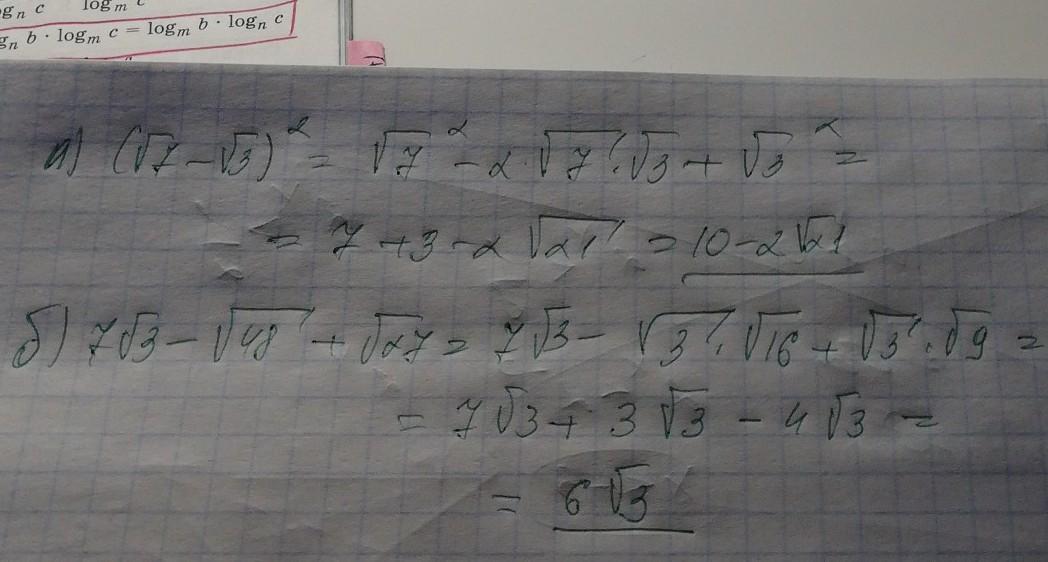 log_m c
b · log_m c = log_m b · log_n c
а) (√7 − √3)² = √7² − 2 · √7 · √3 + √3² =
= 7 + 3 − 2 √21 = 10 − 2√21
б) 7√3 − √48 + √27 = 7√3 − √3 · √16 + √3 · √9 =
= 7√3 + 3√3 − 4√3 =
= 6√3